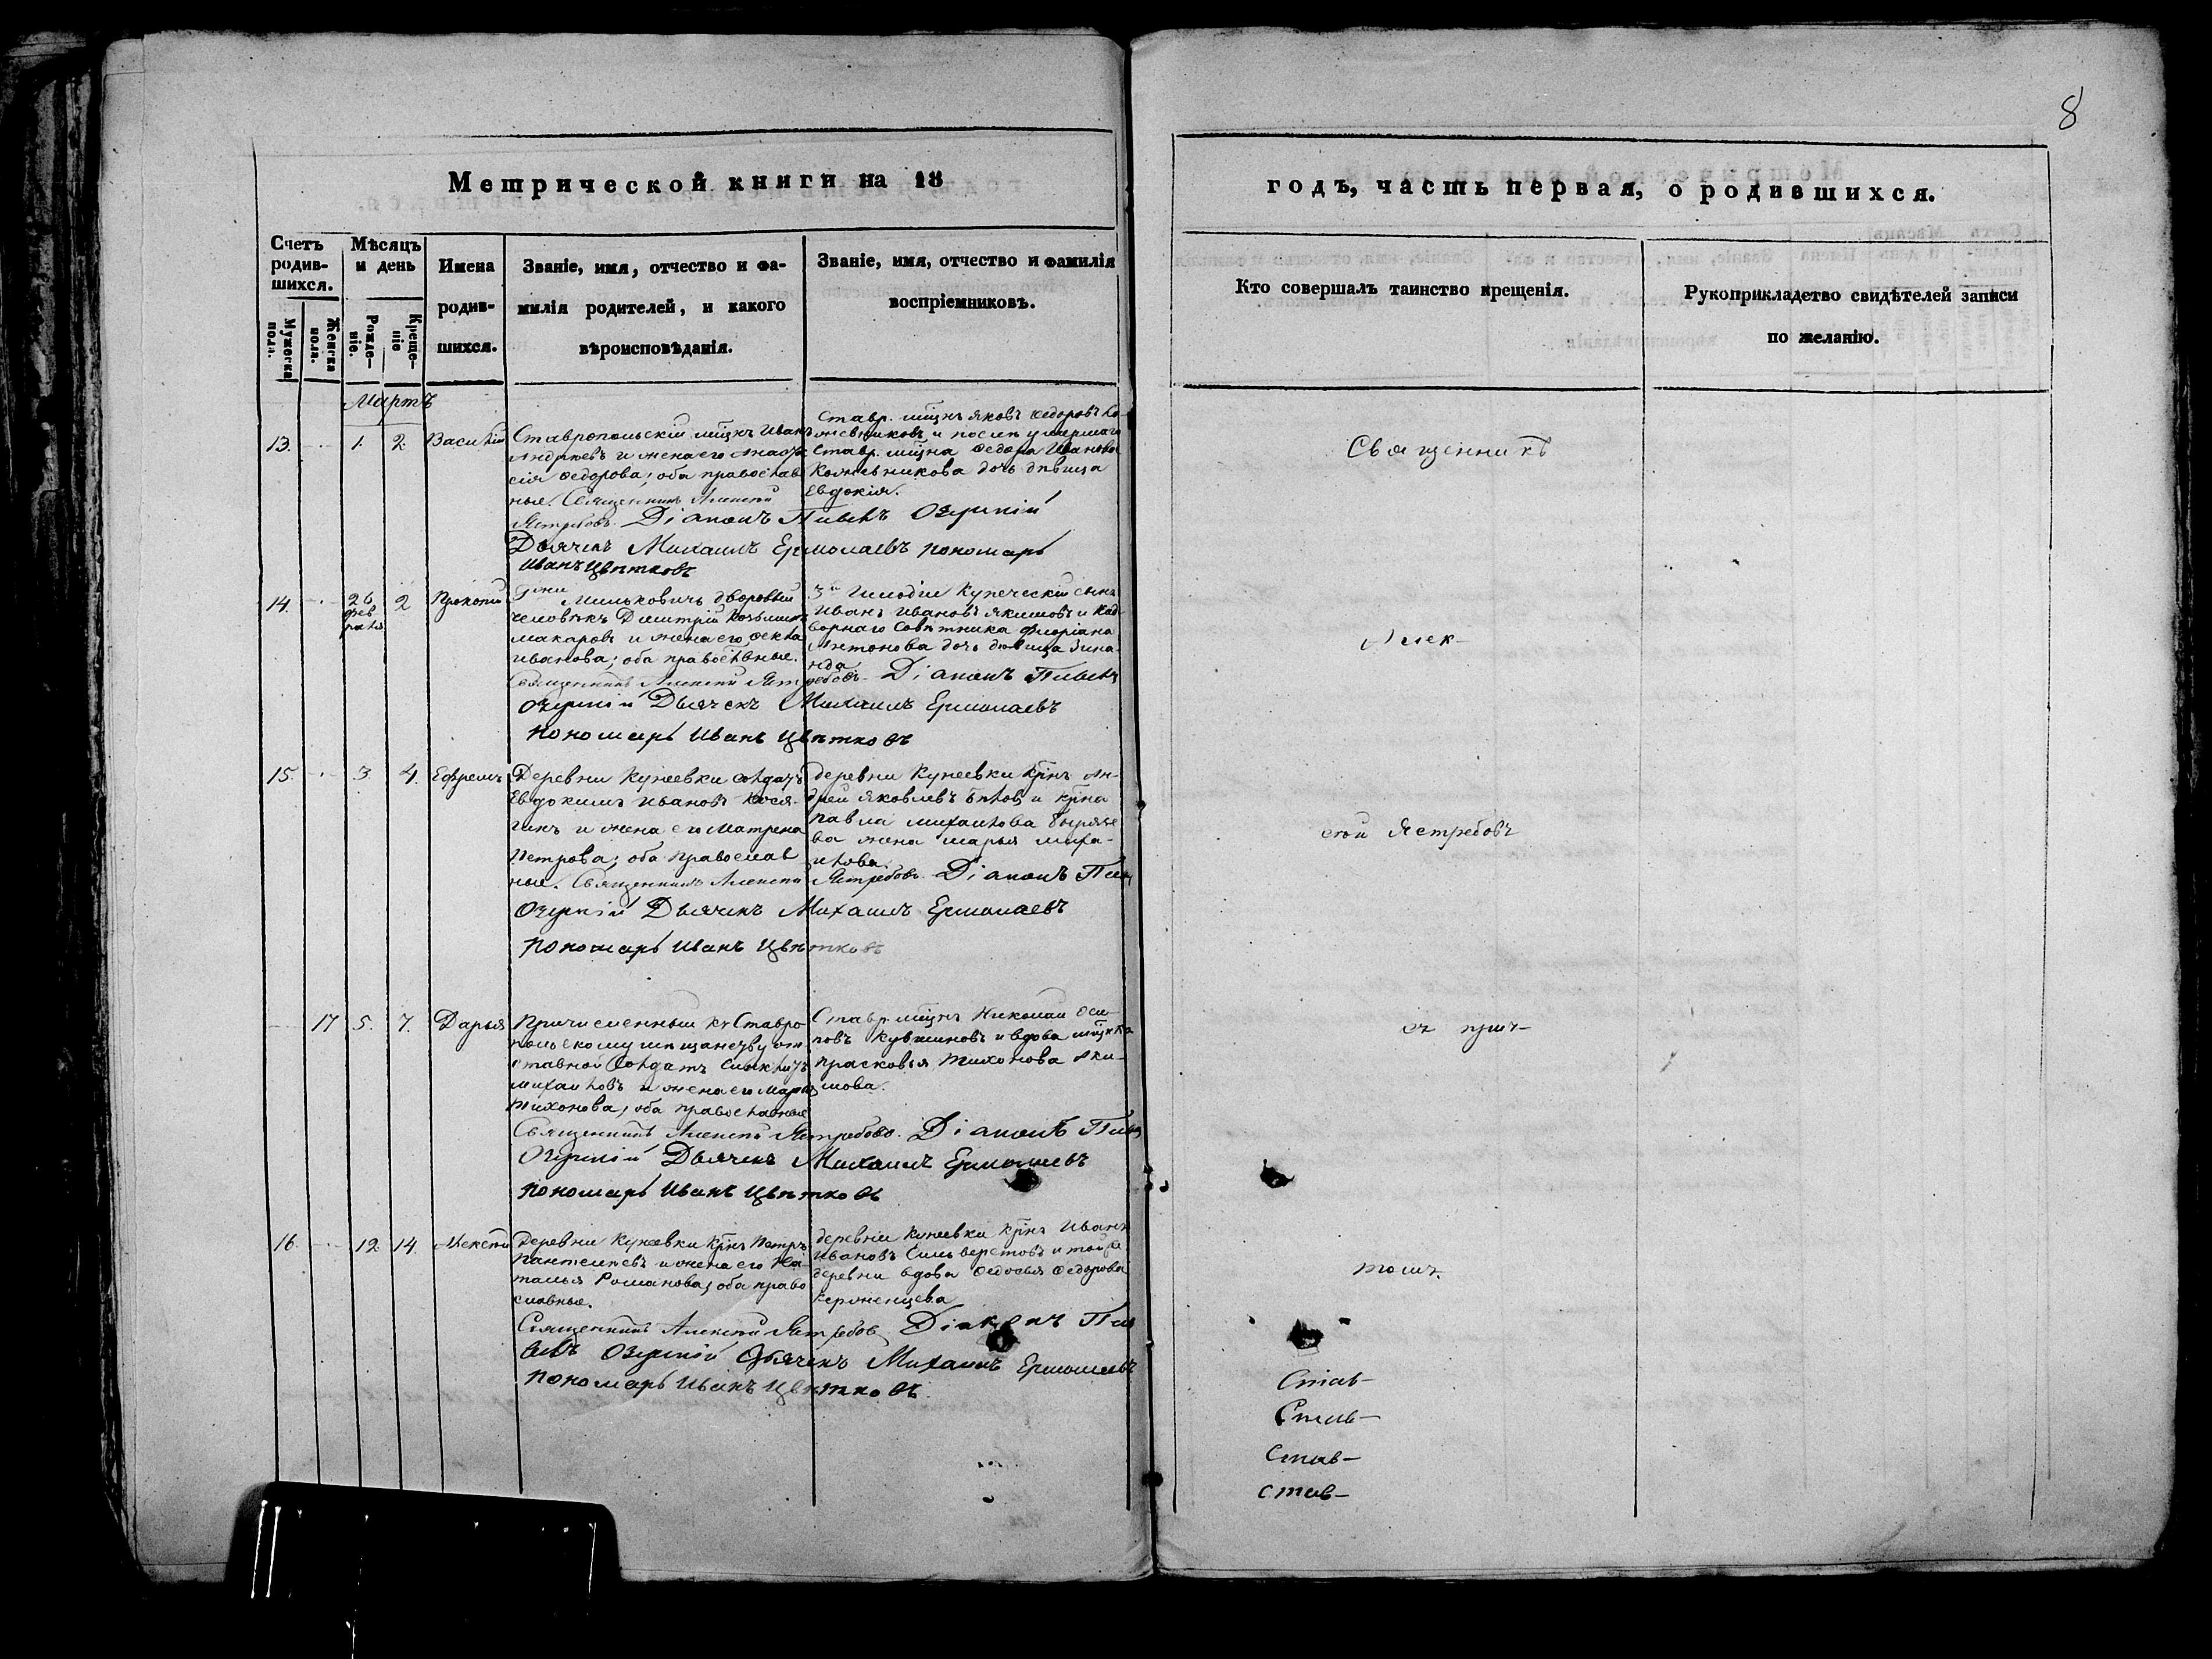 8
Метрической книги на 18
годъ, часть первая, о родившихся.
Счетъ родив-шихся.
Мужеска пола.
Женска пола.
Мѣсяцъ и день
Рожде-ніе.
Креще-ніе
Имена
родив-
шихся.
Званіе, имя, отчество и фа-
милія родителей, и какого
вѣроисповѣданія.
Званіе, имя, отчество и фамилія
воспріемниковъ.
Кто совершалъ таинство крещенія.
Рукоприкладство свидѣтелей записи
по желанію.
Мартъ
13. 1. 2. Василій
Ставропольскій мѣщнъ Иванъ
Андреевъ и жена его Анаста
сія Федорова; оба православ
ные. Священникъ Алексѣй
Ястребовъ. Діаконъ Пивенъ Озерскій
Дьячекъ Михаилъ Ермолаевъ пономарь
Иванъ Цвѣтковъ
Ставр. мѣщнъ Яковъ Федоровъ Ко-
жевниковъ и послѣ умершаго
Ставр. мѣщна Федора Иванова
Кожевникова дочь дѣвица
Евдокія.
14. 26 февраля 2 Прокопій
Гжи Милькович дворовый
человѣкъ Димитрій Козьминъ
Макаровъ и жена его Фекла
Иванова; оба православные.
Священникъ Алексѣй Ястребовъ. Діаконъ Пивенъ
Озерскій Дьячекъ Михаилъ Ермолаевъ
пономарь Иванъ Цвѣтковъ
3й Гильдіи Купеческій сынъ
Иванъ Ивановъ Якимовъ и Над-
ворнаго Совѣтника Флоріана
Антонова дочь дѣвица Зина-
ида
15. 3 4. Ефремъ
Деревни Кунеевки солдатъ
Евдокимъ Ивановъ Кося-
гинъ и жена его Матрена
Петрова; оба православ
ные. Священникъ Алексѣй Ястребовъ. Діаконъ Пивен
Озерскій Дьячекъ Михаилъ Ермолаевъ
пономарь Иванъ Цвѣтковъ
деревни Кунеевки крнъ Ан-
дрей Яковлевъ Бѣлов и крна
Павла Михаилова
ва жена Марья Миха-
илова.
17 5. 7. Дарья
Причисленный къ Ставро
польскому мѣщанству от
ставной Солдатъ
Михаиловъ и жена его Марья
Тихонова; оба православные
Священникъ Алексѣй Ястребовъ. Діаконъ Пивен
Озерскій Дьячекъ Михаилъ Ермолаевъ
пономарь Иванъ Цвѣтковъ
Ставр мѣщнъ Николай Оси
повъ Кувшиновъ и вдова мѣщнка
Прасковья Тихонова Аки-
мова.
16. 12 14 Алексѣй
Деревни Кунеевки Крнъ Петръ
Пантелѣевъ и жена его На
талья Романова; оба право
славные.
Священникъ Алексѣй Ястребов Діаконъ Пи
венъ Озерскій Дьячекъ Михаилъ Ермолаевъ
пономарь Иванъ Цвѣтковъ.
деревни Кунеевки крнъ Иванъ
Ивановъ Сильверстовъ и той же
деревни вдова Федосья Федорова
Керженцева
Священникъ
Алек-
сѣй Ястребовъ
съ прич-
томъ.
Став-
Став-
Став-
Став-